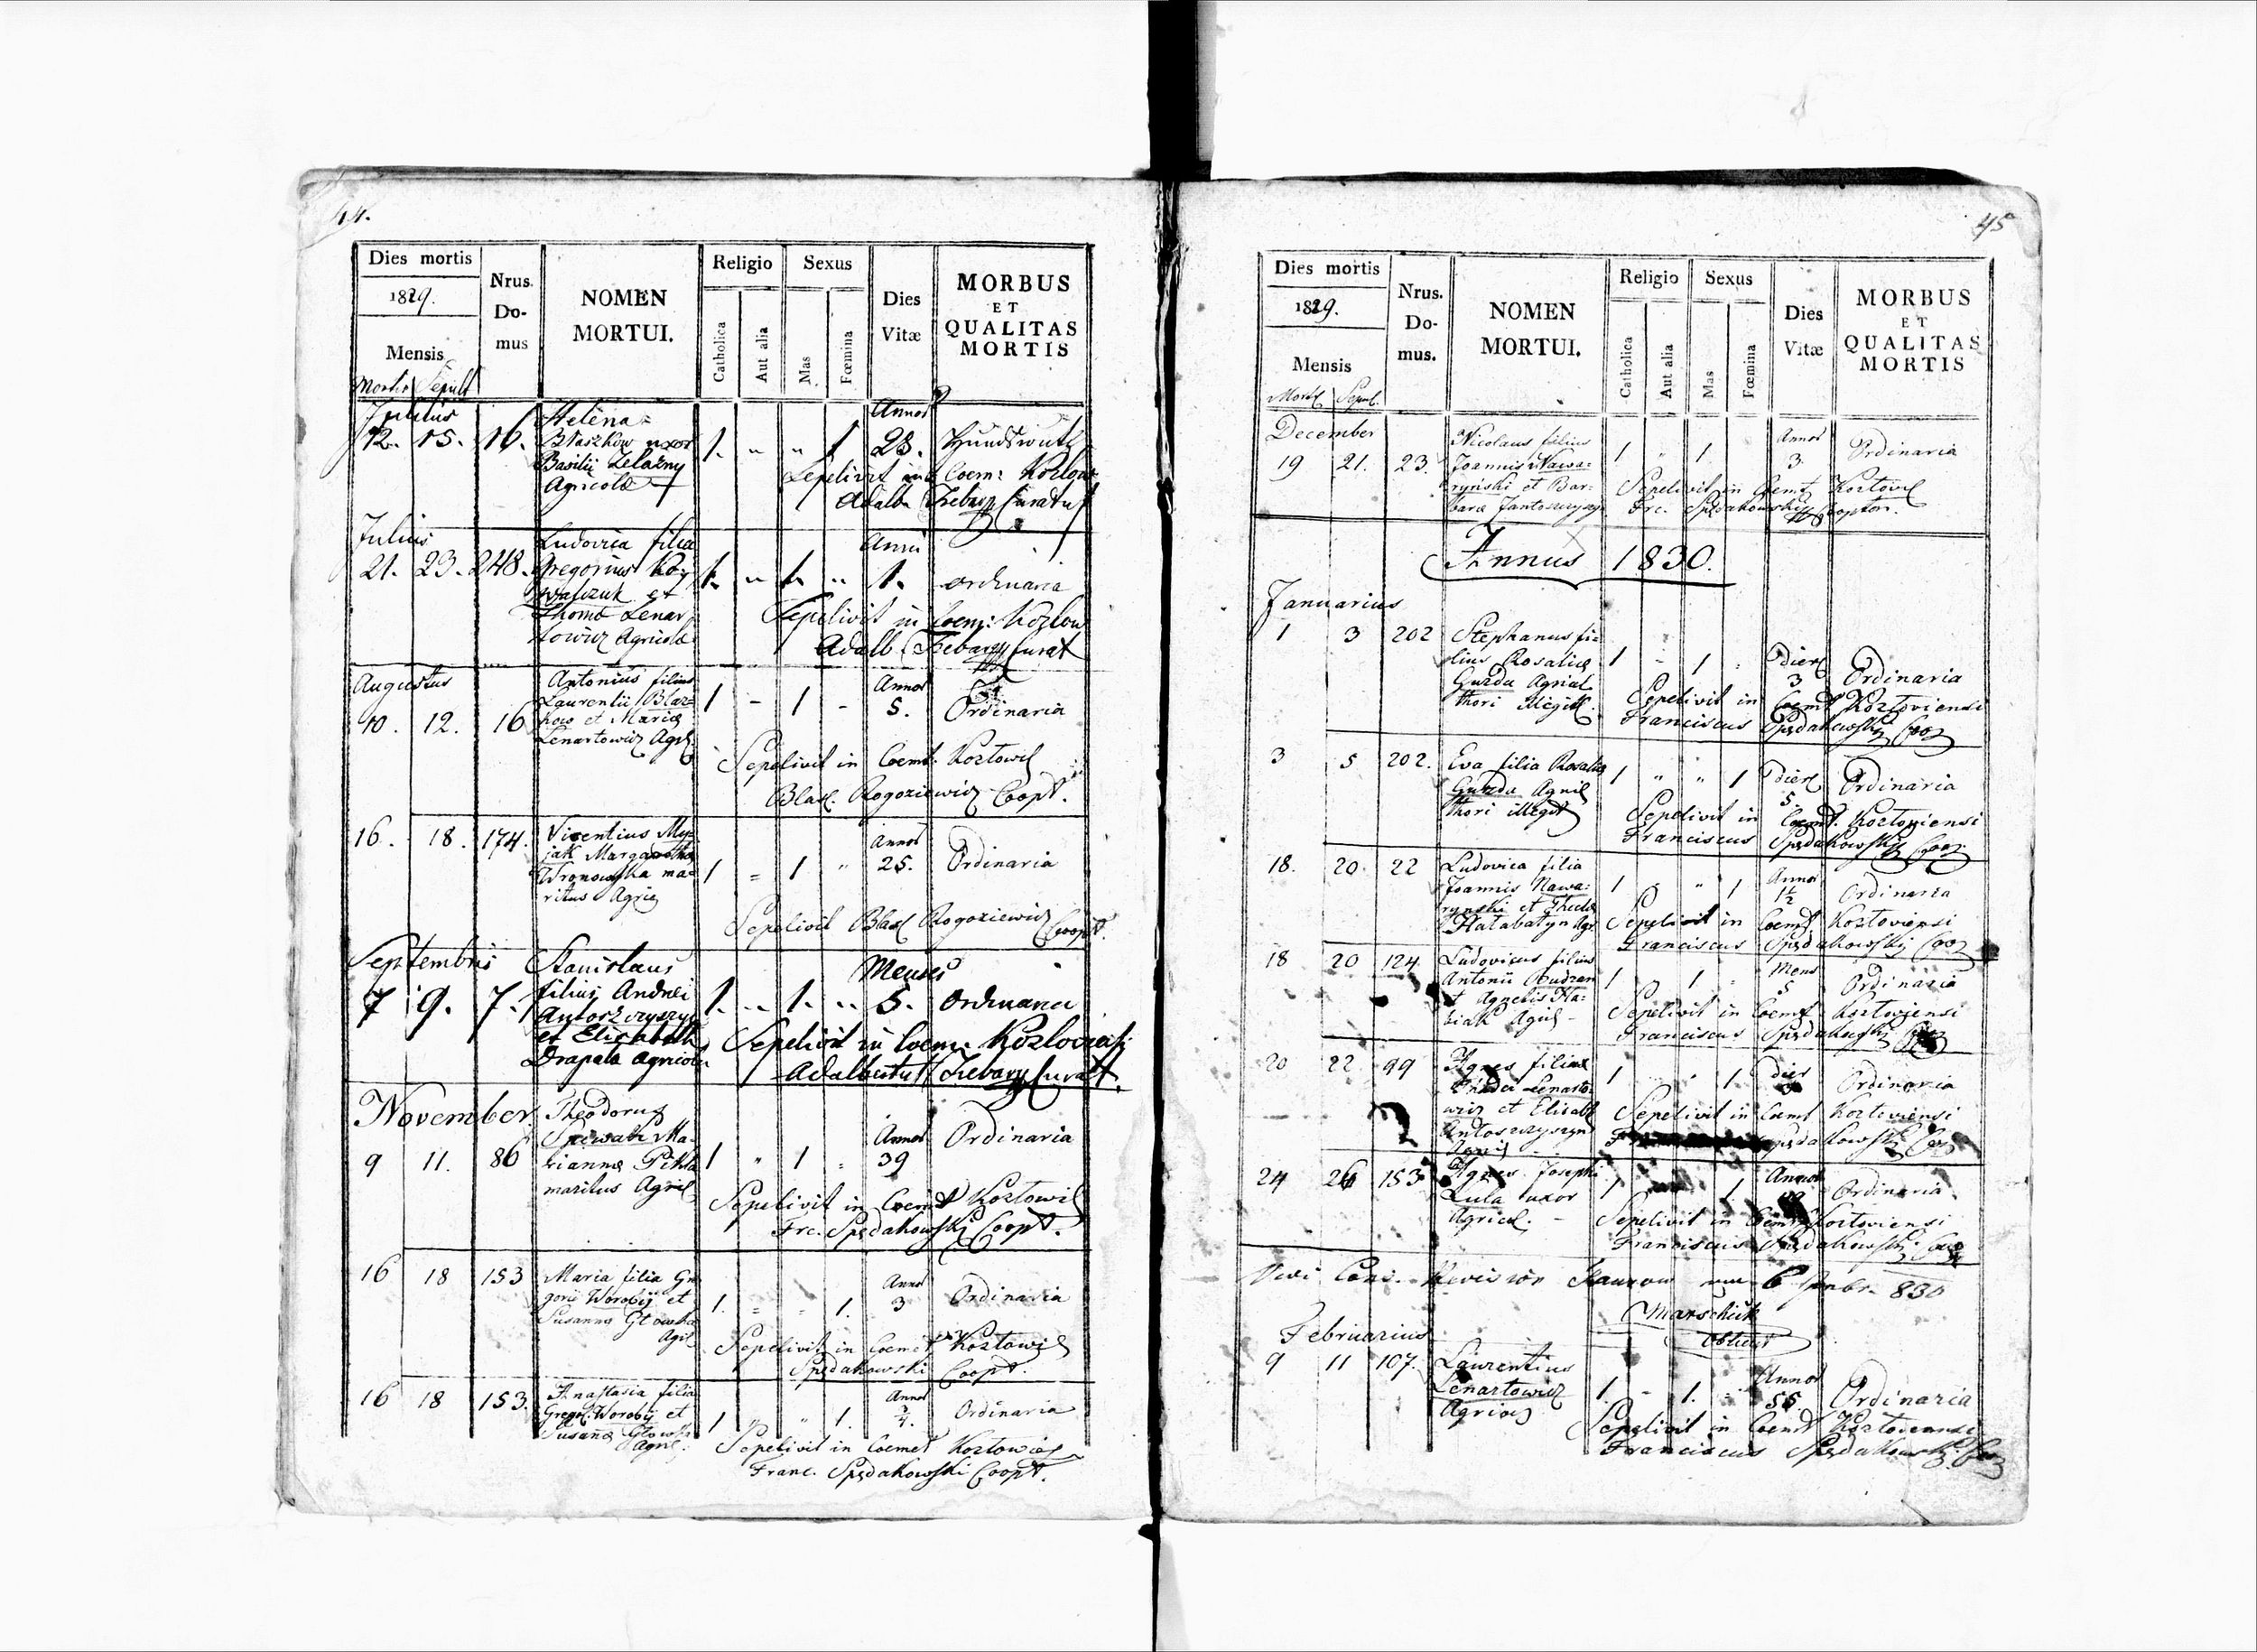 44.
Dies mortis
1829.
Mensis
Mortis Sepult
Nrus. Do- mus
NOMEN MORTUI.
Religio
Catholica
Aut alia
Sexus
Mas
Fœmina
Dies Vitæ
MORBUS
ET
QUALITAS
MORTIS
Julius
12. 15. 16. Helena
Błaszków uxor
Basilii Zelazny
Agricolæ
1. " " 1 Annos 28. Hundswuth
Sepelivit in Coem: Kozlow
Adalb Zebary Curatus
Julius
21. 23. 248. Ludovica filia
Gregorius Ko-
walczuk et
Thomæ Lenar
towicz Agricolæ
1. " 1. " Anni 1. ordinaria
Sepelivit in Coem: Kozlow
Adalb Zebary Curat
Augustus
10. 12. 16 Antonius filius
Laurentii Blaz-
kow et Maria
Lenartowicz Agrl
1 - 1 - Annos 5. Ordinaria
Sepelivit in Coemt. Kozlowi
Blas. Rogoziewicz Coopt.
16. 18. 174. Vicentius My-
jak Margaretha
Wronowska ma-
ritus Agric
1 = 1 " Annos 25. Ordinaria
Sepelivit Blas Rogoziewicz Coopt.
Septembris
7 9. 7. Stanislaus
filius Andrei
Antoszczyszyn
et Elisabeth
Drapala agricola
1. .. 1. .. Menses 5. Ordinaria
Sepelivit in Coem: Kozloviensi
Adalbertus Zebary Curatt.
November
9 11. 86 Theodorus
Spiwak Ma-
rianna
maritus Agricl
1 " 1 " Annos 39 Ordinaria
Sepelivit in Coemt Kozlowi
Frc. Spędakowski Coopt.
16 18 153 Maria filia Gre
gorii Worobij et
Susanna Glowska
Agrl
1. = - 1. Annos 3 Ordinaria
Sepelivit in Coemet Kozlowi
Spędakowski Coopt.
16 18 153. Anastasia filia
Gregor. Worobij et
Susana Glowska
Agric.
1 " " 1. Annos 3/4. Ordinaria
Sepelivit in Coemet Kozlowi
Franc. Spędakowski Coopt.
45
Dies mortis
1829.
Mensis
Mort. Sepul.
Nrus. Do- mus.
NOMEN MORTUI.
Religio
Catholica
Aut alia
Sexus
Mas
Fœmina
Dies Vitæ
MORBUS
ET
QUALITAS
MORTIS
December
19 21. 23. Nicolaus filius
Joannis Nawa-
ryński et Bar-
bara Jantoszczyszyn
1 " 1. Annos 3. Ordinaria
Sepelivit in Coemt Kozlowi
Frc. Spędakowski Coopton.
Annus 1830.
Januarius
1 3 202 Stephanus fi-
lius Rosalia
Guzda Agricl
thori illegit.
1 - 1 - Dies 3 Ordinaria
Sepelivit in Coemt Kozloviensi
Franciscus Spędakowski Coop
3 5 202. Eva filia Rosalia
Guzda Agricl
thori illegit
1 " " 1 Dies 5 Ordinaria
Sepelivit in Coemt. Kozloviensi
Franciscus Spędakowski Coop.
18. 20. 22 Ludovica filia
Joannis Nawa-
rynski et Thecla
Halabatyn Agr.
1 " " 1 Annos 1½ Ordinaria
Sepelivit in Coemt. Kozloviensi
Franciscus Spędakowski Coop
18 20 124. Ludovicus filius
Antonii
et Agnetis
Agricl
1 " 1 Mens 5 Ordinaria
Sepelivit in Coemt Kozloviensi
Franciscus Spędakowski
20 22 99 Agnes filia
Lenarto-
wicz et Elisab
Antoszczyszyn
Agricl
1 " 1 Dies Ordinaria
Sepelivit in Coemt Kozloviensi
Spędakowski Coop
24 26 153 Agnes Josephi
Lula uxor
Agricol.
1 1. Annos Ordinaria
Sepelivit in Coemt Kozloviensi
Franciscus Spędakowski Coop
6 830
Februarius
9 11 107. Laurentius
Lenartowicz
Agricl
1. - 1. - Annos 55. Ordinaria
Sepelivit in Coemt Kozloviensi
Franciscus Spędakowski Coop